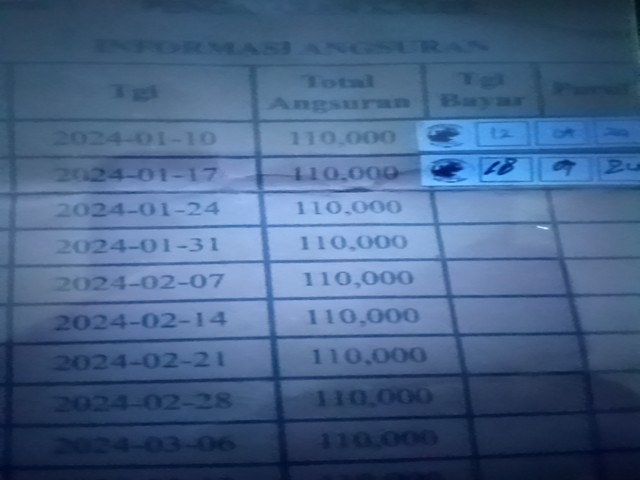 INFORMASI ANGSURAN
Tgl Total Angsuran Tgl Bayar Paraf
2024-01-10 110,000 12 09 20
2024-01-17 110,000 18 9
2024-01-24 110,000
2024-01-31 110,000
2024-02-07 110,000
2024-02-14 110,000
2024-02-21 110,000
2024-02-28 110,000
2024-03-06 110,000